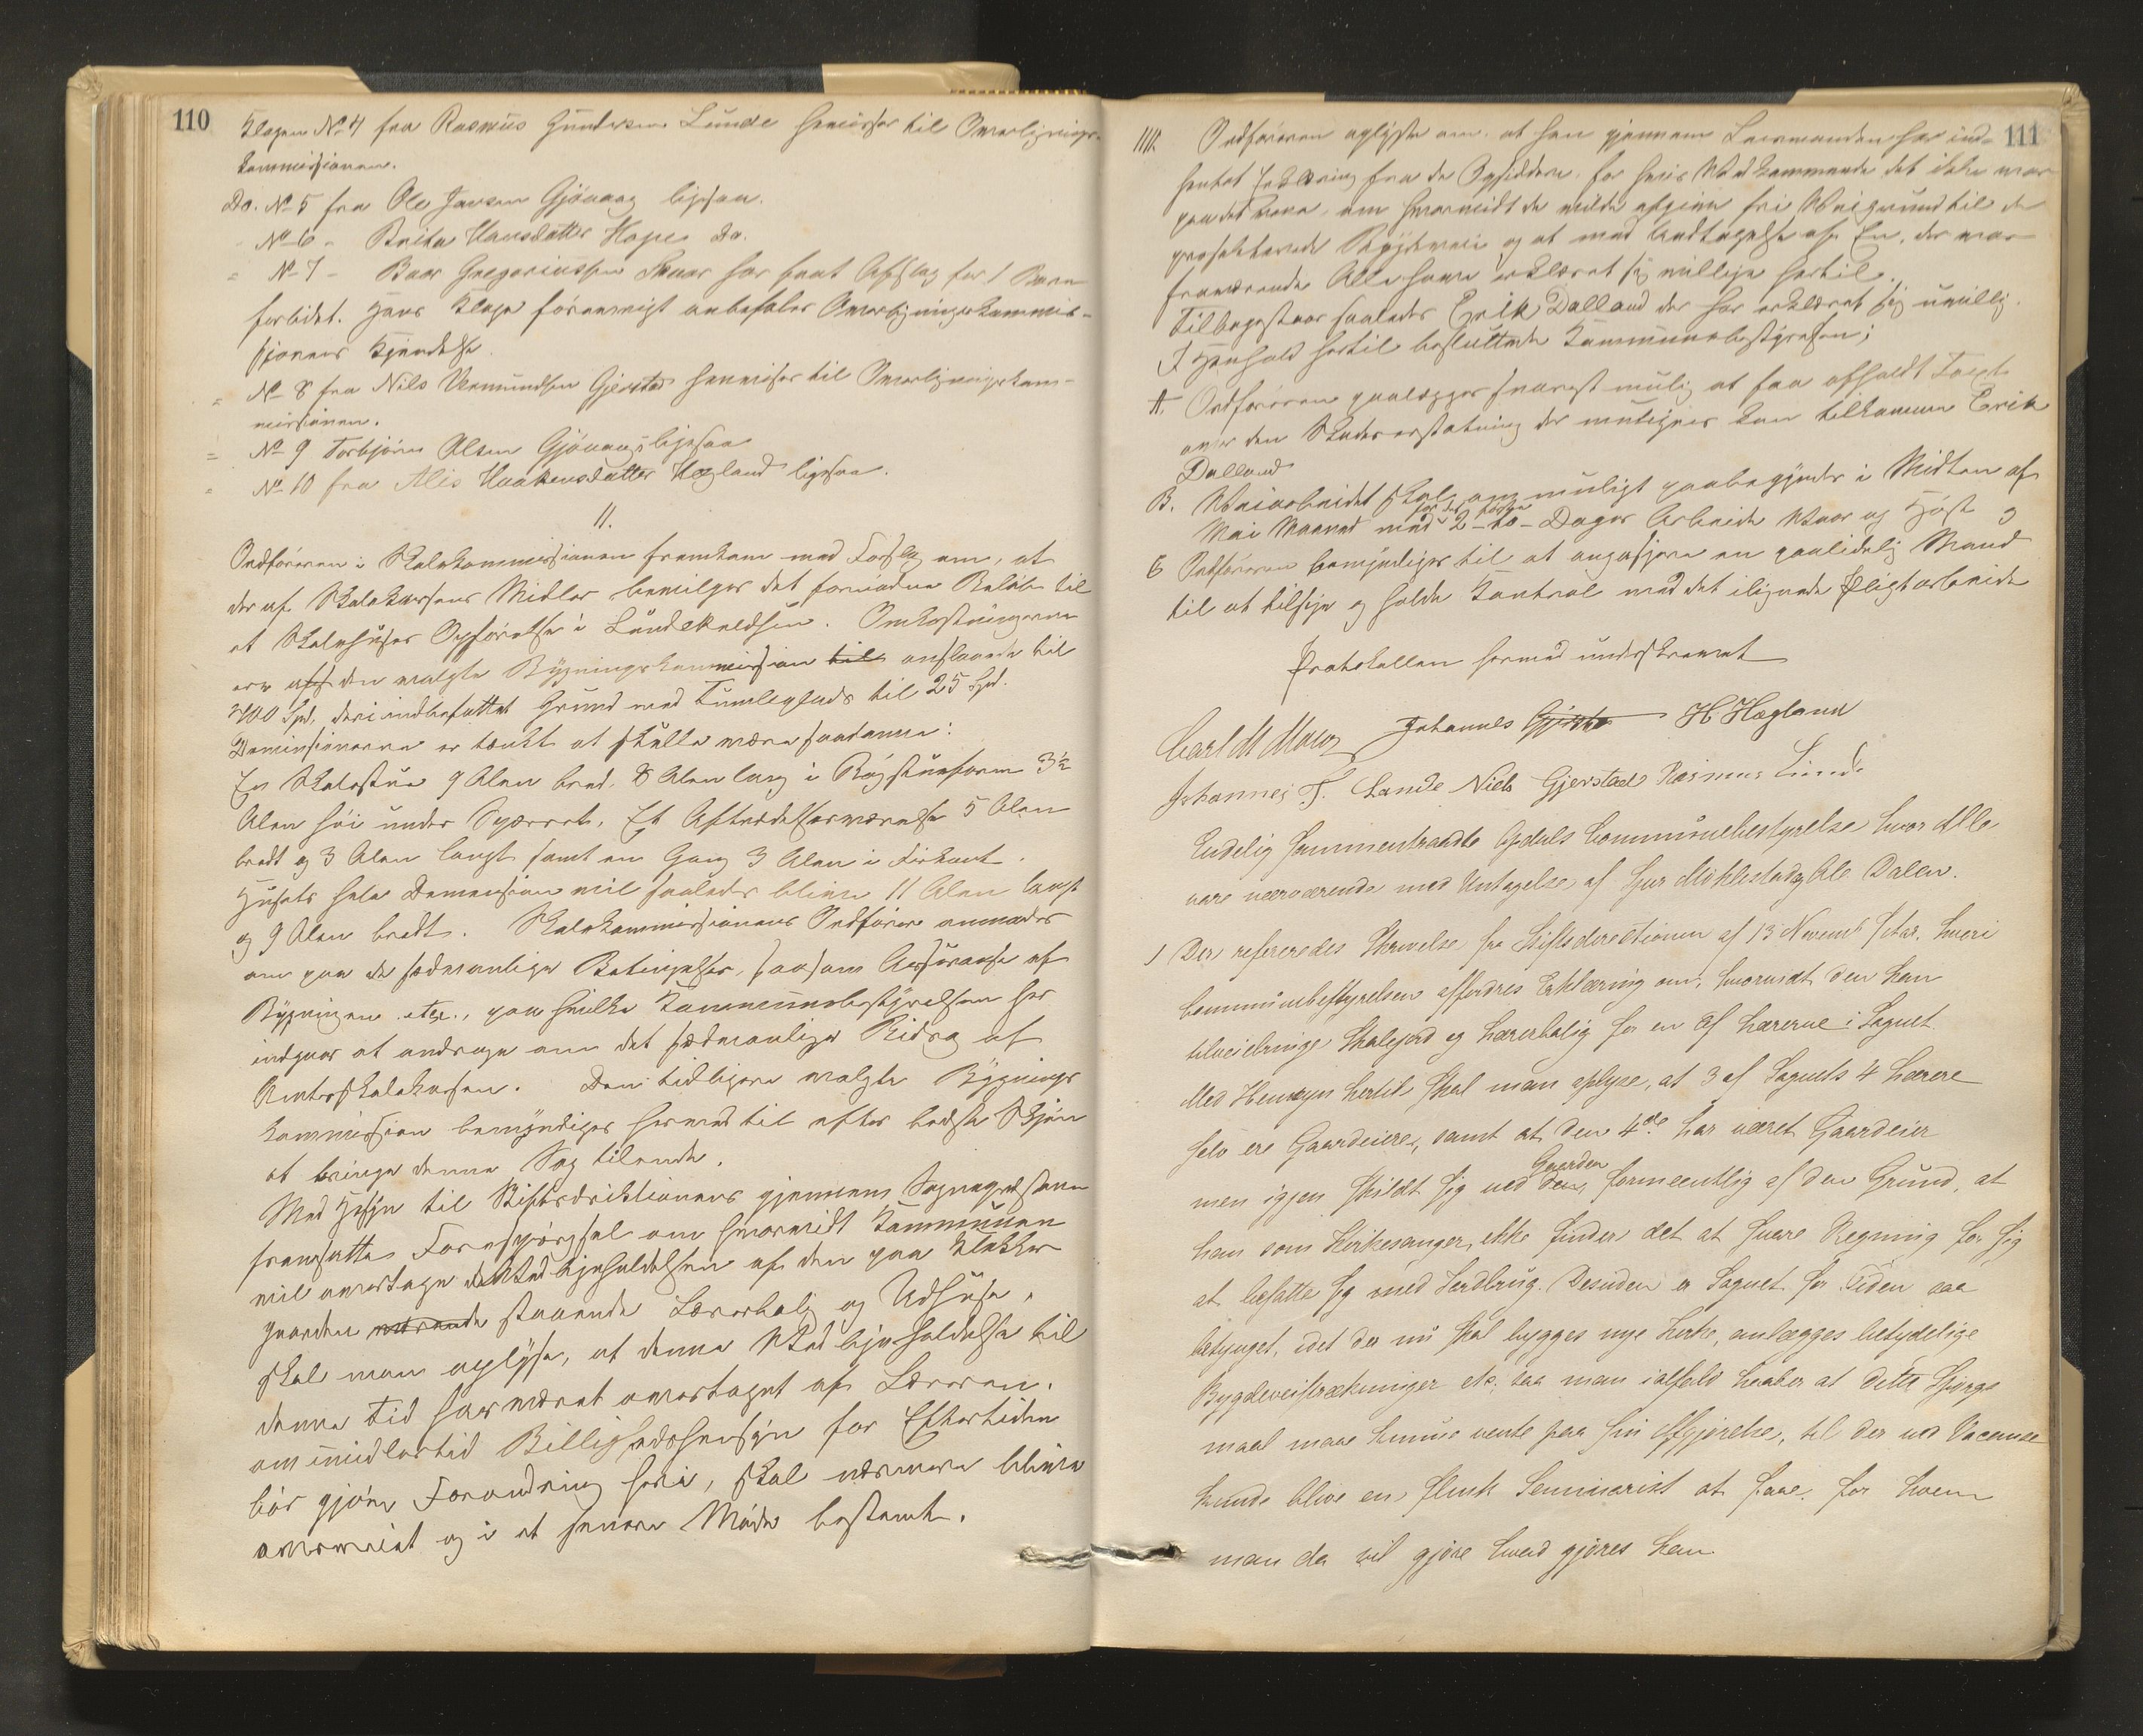 110
Klagen No 4 fra Rasmus Gundersen Lunde henvises til Omerlignings-
kommissionen.
Do. No 5 fra Ole Jansen Gjövaag ligesaa.
No 6 - Brita Hansdatter Hope do.
" No 7 - Baar Gregoriussen Skaar har faaet Afslag for 1 Barn
forbidet. Hans Klage forövrigt anbefales Omerligningskommis-
sjonens Kjendelse.
" No 8 fra Nils Vermundsen Gjerstad henvises til Omerligningskom-
missionen.
" No 9 Torbjörn Olsen Gjövaag ligesaa
" No 10 fra Alis Haakensdatter Hægland ligesaa.
11.
Ordföreren i Skolekommissionen fremkom med Forslag om, at
der af Skolekassens Midler bevilges det fornödne Belöb til
et Skolehuses Opförelse i Lundekredsen. Omkostningerne
ere af den valgte Bygningskommission til anslaaede til
400 Spd. deri indbefattet Grund med Tumleplads til 25 Spd.
Demensionerne er tænkt at skulle være saadanne:
En Skolestue 9 Alen bred, 8 Alen lang i Rögstueform 3½
Alen höi under Sperret. Et Aftrædelsesværelse 5 Alen
bredt og 3 Alen langt samt en Gang 3 Alen i Firkant.
Husets hele Demension vil saaledes blive 11 Alen langt
og 9 Alen bredt. Skolekommissionens Ordförer anmodes
om paa de sædvanlige Betingelser, saasom Assurance af
Bygningen etc., paa hvilke Kommunebestyrelsen her
indgaar at andrage om det sædvanlige Bidrag af
Amtsskolekassen. Den tidligere valgte Bygnings
kommission bemyndiges hermed til efter bedste Skjön
at bringe denne Sag tilende.
Med Hensyn til Stiftsdirektionens gjennem Sognepresten
fremsatte Forespörgsel om hvorvidt Kommunen
vil overtage Vedligeholdelsen af den paa Klokker
gaarden værende staaende Lærerbolig og Udhuse,
skal man oplyse, at denne Vedligeholdelse til
denne Tid har været overtaget af Læreren.
om imidlertid Billighedshensyn for Eftertiden
bör gjöre Forandring heri, skal nærmere blive
overveiet og i et senere Möde bestemt.
111
1111. Ordföreren oplyste om, at han gjennem Lensmanden har ind-
hentet Erklæring fra de Opsiddere for hvis Vedkommende det ikke var
paa det rene, om hvorvidt de vilde afgive fri Veigrund til de
projekterede Bygdeveie og at med Undtagelse af En, der var
fraværende Alle have erklæret sig villige hertil.
Tilbagestaar saaledes Erik Dalland der har erklæret sig uvillig.
I Henhold hertil besluttede Kommunebestyrelsen;
A. Ordföreren paalægges snarest mulig at faa afholdt Taxt
over den Skadeserstatning der muligens kan tilkomme Erik
Dalland
B. Veiarbeidet skal om muligt paabegyndes i Midten af
Mai Maaned med 2-to- Dages Arbeide Vaar og Höst
C Ordföreren bemyndiges til at engasjere en paalidelig Mand
til at tilsige og holde Kontrol med det ilignede Pligtarbeide
Protokollen hermed underskrevet
Johannes Gjerstad H Hægland
Johannes T. Lande Niels Gjerstad Rasmus Lunde
Endelig sammentraadte Communebestyrelse hvor Alle
vare nærværende med Untagelse af Sjur Miklestad og Ole Dalen.
1 Der refereredes Skrivelse fra Stiftsdirectionen af 13 Novemb f Aar, hvori
Communebestyrelsen affordres Erklæring om, hvorvidt den kan
tilveiebringe Skolejord og Lærerbolig for en af Lærerne i Sognet.
Med Hensyn hertil skal man oplyse, at 3 af Sognets 4 Lærere
selv ere Gaardeiere, samt at den 4de har været Gaardeier
men igjen skildt sig ved den Gaarden formeentlig af den Grund, at
han som Kirkesanger, ikke finder det at svare Regning for sig
at befatte sig med Jordbrug. Desuden er Sognet for Tiden saa
betynget, idet der nu skal bygges nye Kirke, anlægges betydelige
Bygdeveistrækninger etc, saa man ialfald haaber at dette Spörgs
maal maae kunne vente paa sin Afgjørelse, til der ved Vacance
kunde blive en flink Seminarist at faae, for hvem
man da vil gjøre hvad gjöres kan